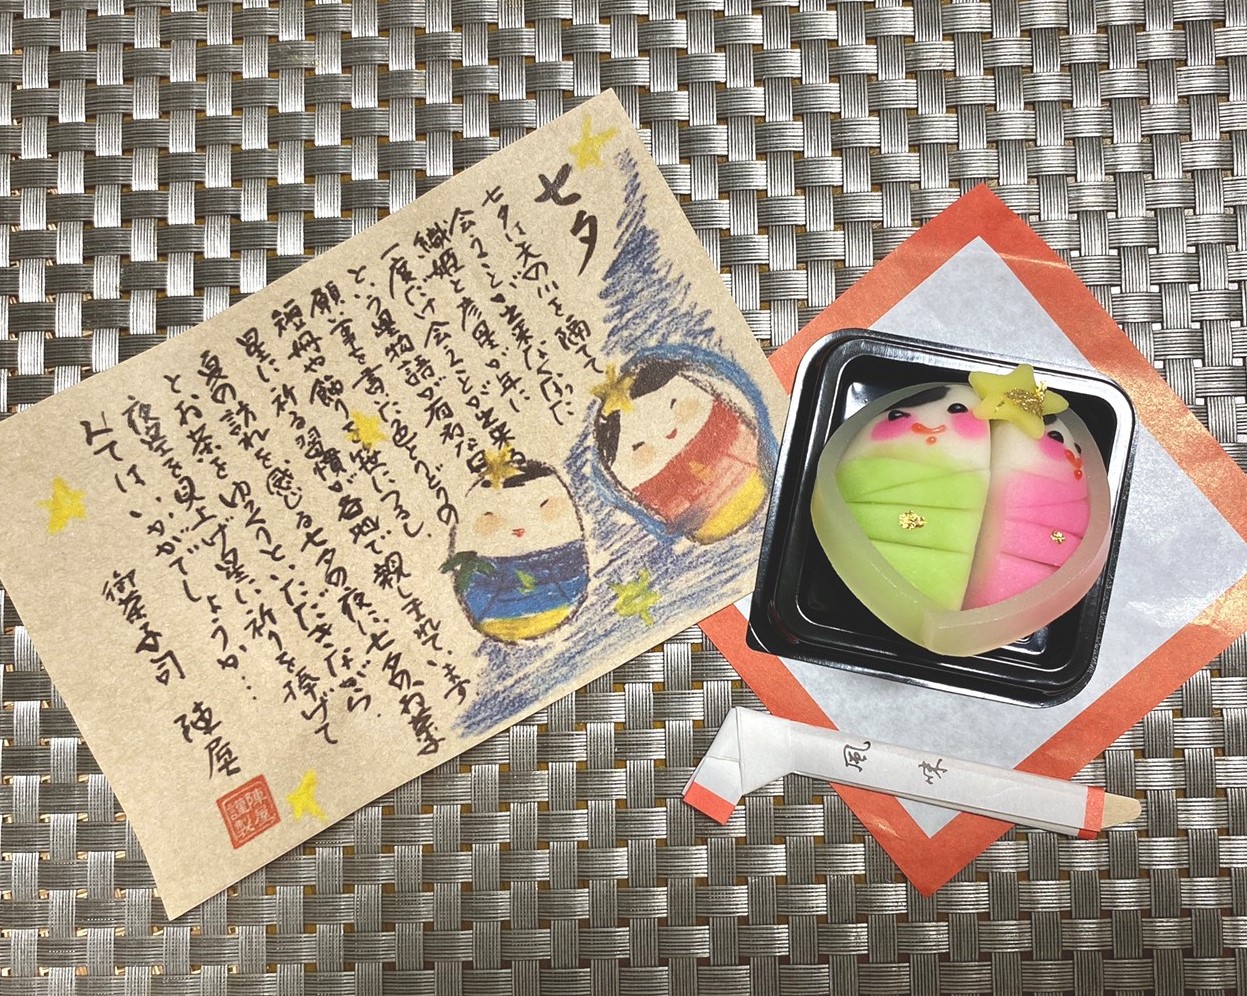 七夕
七夕は天の川を隔て
会うことが出来なくなった
織姫と彦星が年に
一度だけ会うことが出来る
という星物語が有名だ
願い事を書いた色とりどりの
短冊や飾りを笹につるし
星に祈る習慣が各地で親しまれています
夏の訪れを感じる七夕の夜に七夕のお菓子
とお茶をゆっくりといただきながら
夜空を見上げ星に祈りを捧げて
みてはいかがでしょうか…
御菓子司 陣屋
陣屋
謹製
風味